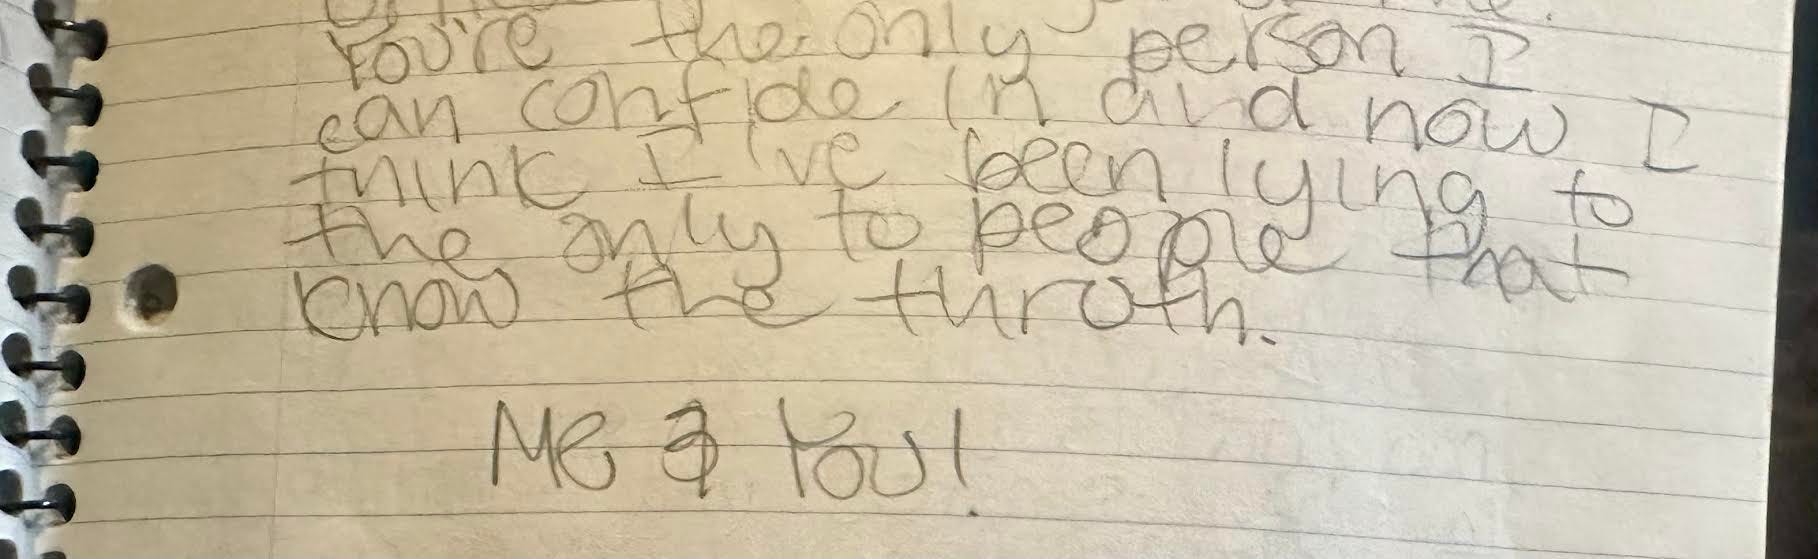 You're the only person I
can confide in and now I
think I I've been lying to
the only to people that
know the thruth.
Me & You!